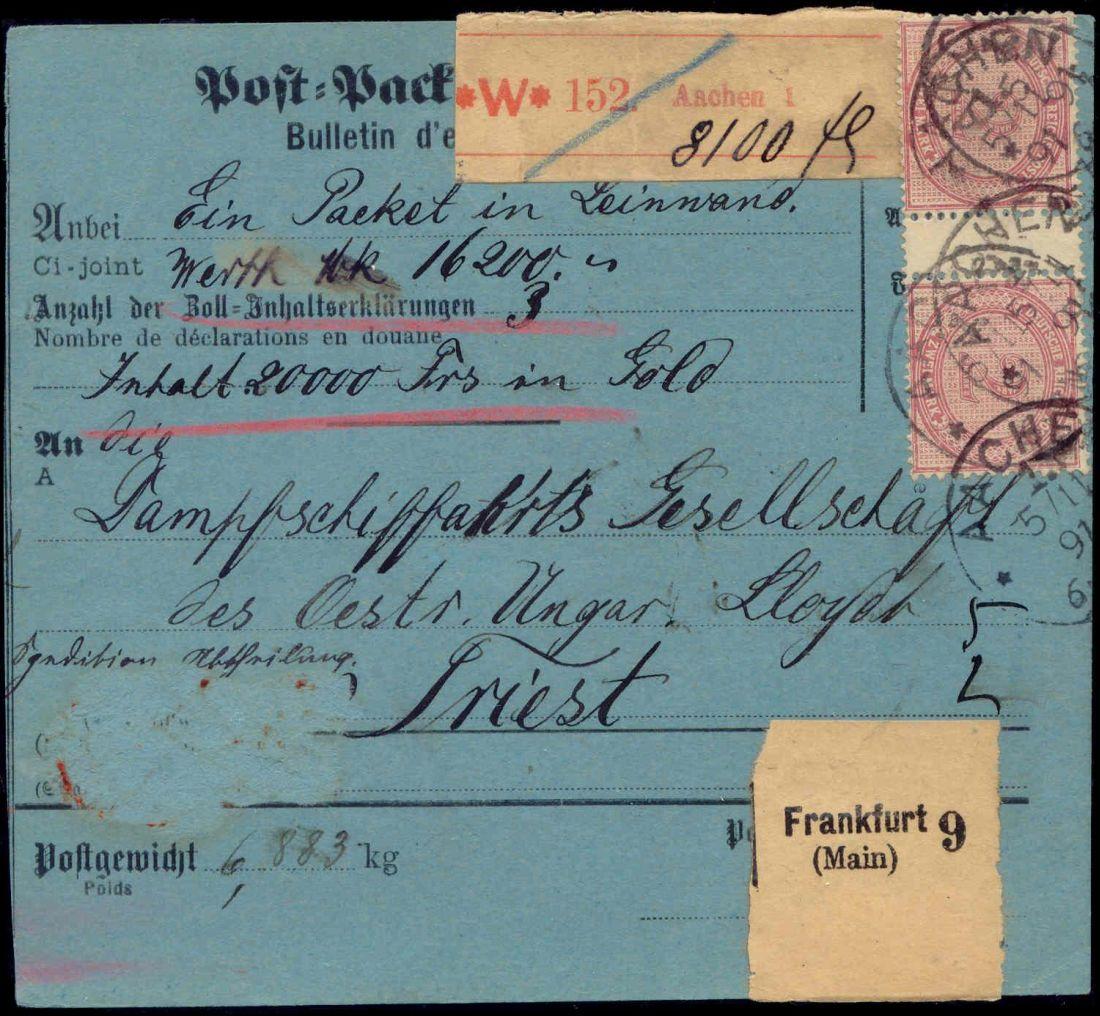 Post-Pack
Bulletin d'e
*W* 152. Aachen 1
8100 fl
Anbei Ein Packet in Leinwand.
Ci-joint Werth Mk 16200.
Anzahl der Zoll-Inhaltserklärungen 3
Nombre de déclarations en douane
Inhalt 20000 Frs in Gold
An die
A
Dampfschiffahrts Gesellschaft
des Oestr. Ungar. Lloyd
Spedition Abtheilung.
Triest
Postgewicht 6,883 kg
Poids
Frankfurt 9
(Main)
AACHEN
AACHEN
AACHEN